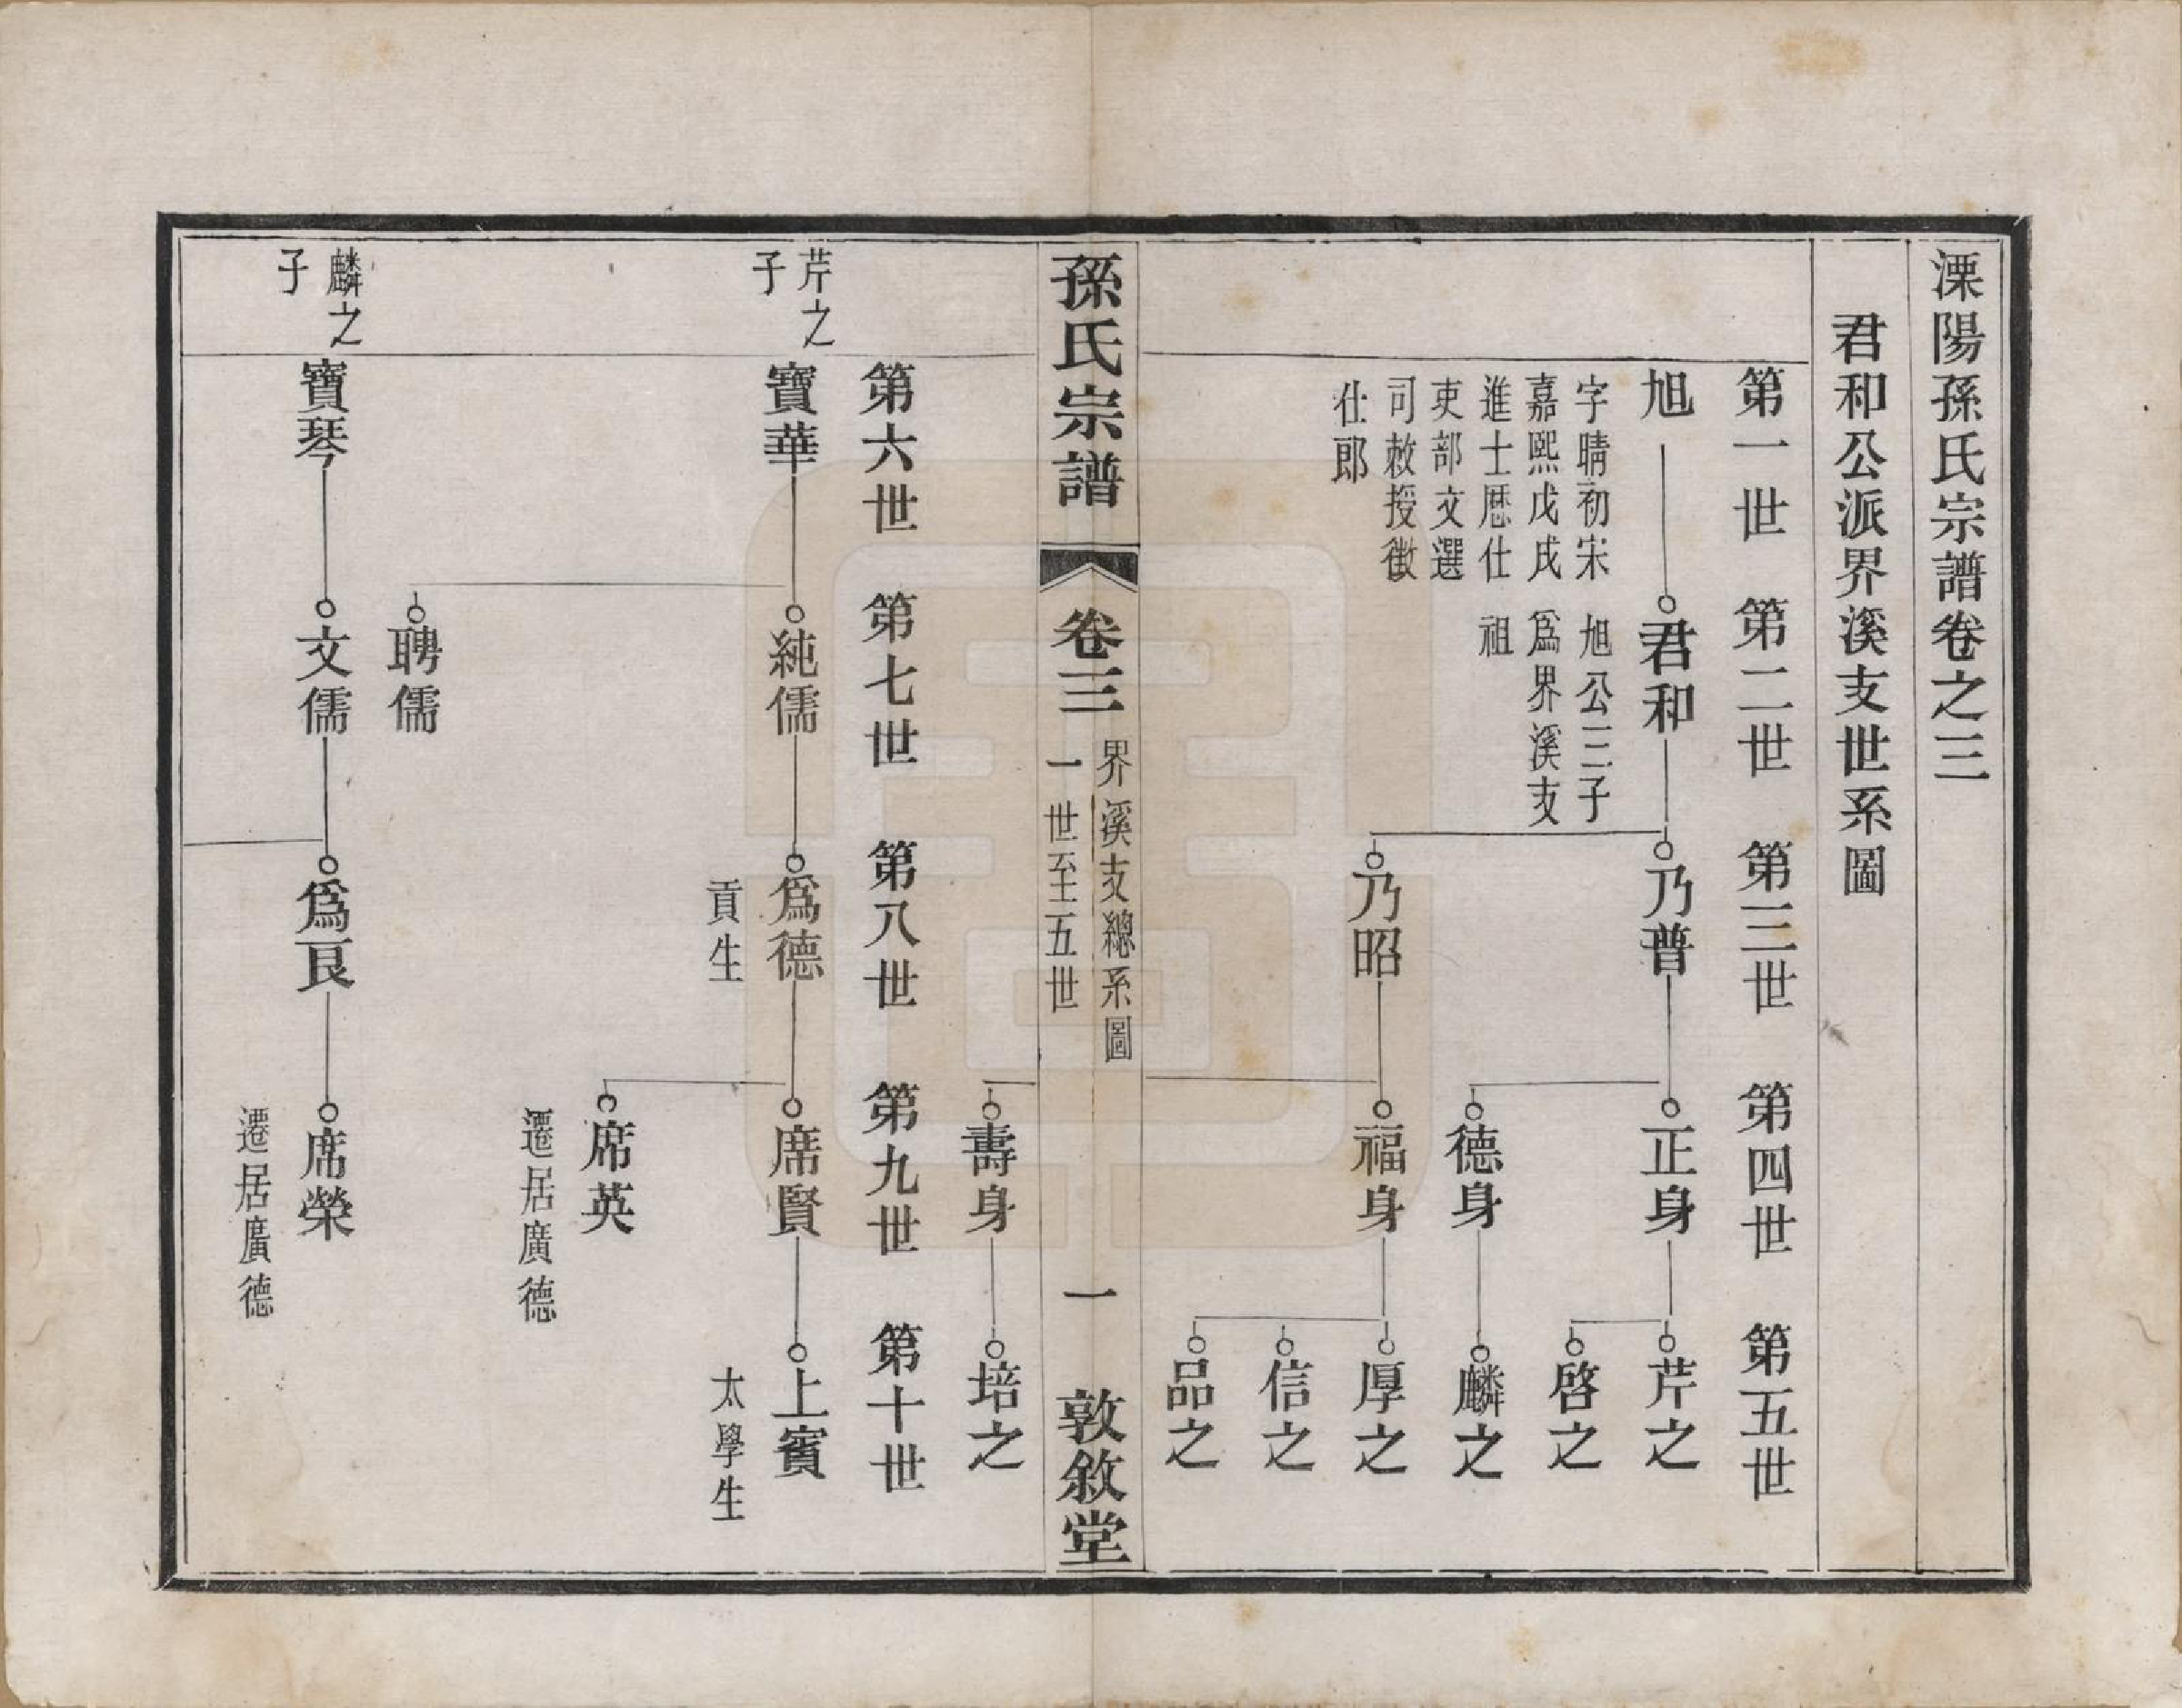 溧陽孫氏宗譜卷之三
君和公派界溪支世系圖
第一世
第二世
第三世
第四世
第五世
旭
君和
乃普
正身
芹之
字晴初宋
嘉熙戊戌
進士歷仕
吏部文選
司敕授徵
仕郎
旭公三子
爲界溪支
祖
啓之
德身
麟之
乃昭
福身
厚之
信之
品之
孫氏宗譜
卷三
界溪支總系圖
一世至五世
一
敦敘堂
壽身
培之
第六世
第七世
第八世
第九世
第十世
芹之
子
寶華
純儒
爲德
席賢
上賓
貢生
太學生
席英
遷居廣德
聘儒
麟之
子
寶琴
文儒
爲艮
席榮
遷居廣德